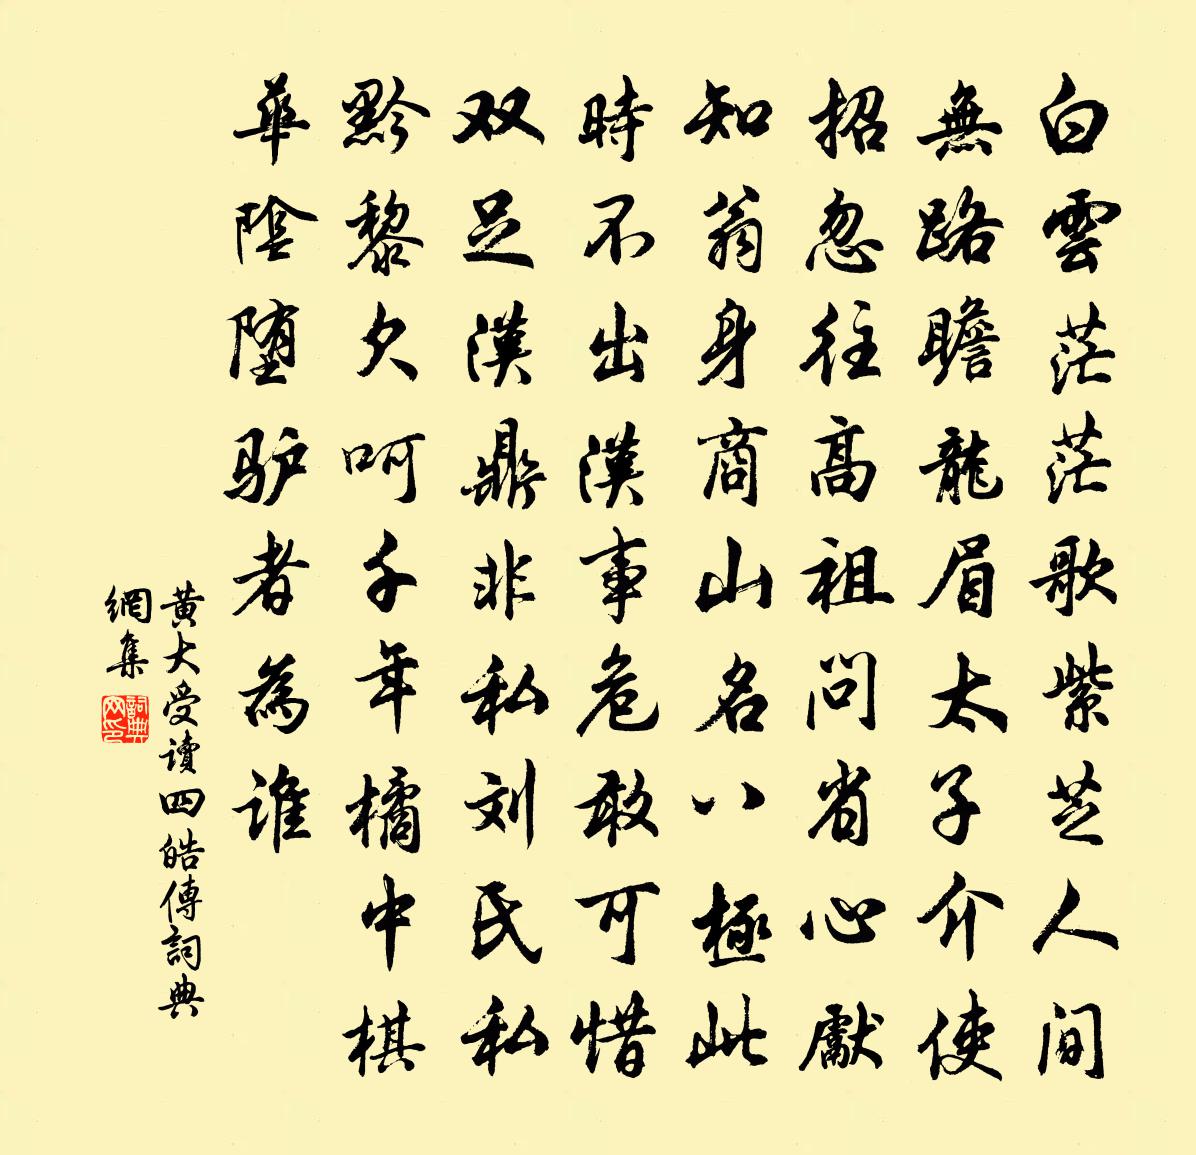 白雲茫茫歌紫芝人间
無路瞻龍眉太子介使
招忽往高祖问省心獻
知翁身商山名八極此
時不出漢事危敢可惜
双足漢鼎非私刘民私
黔黎欠呵千年橘中棋
華陰堕驴者為谁
黄大受讀四皓傳詞典
網集
詞典
网印